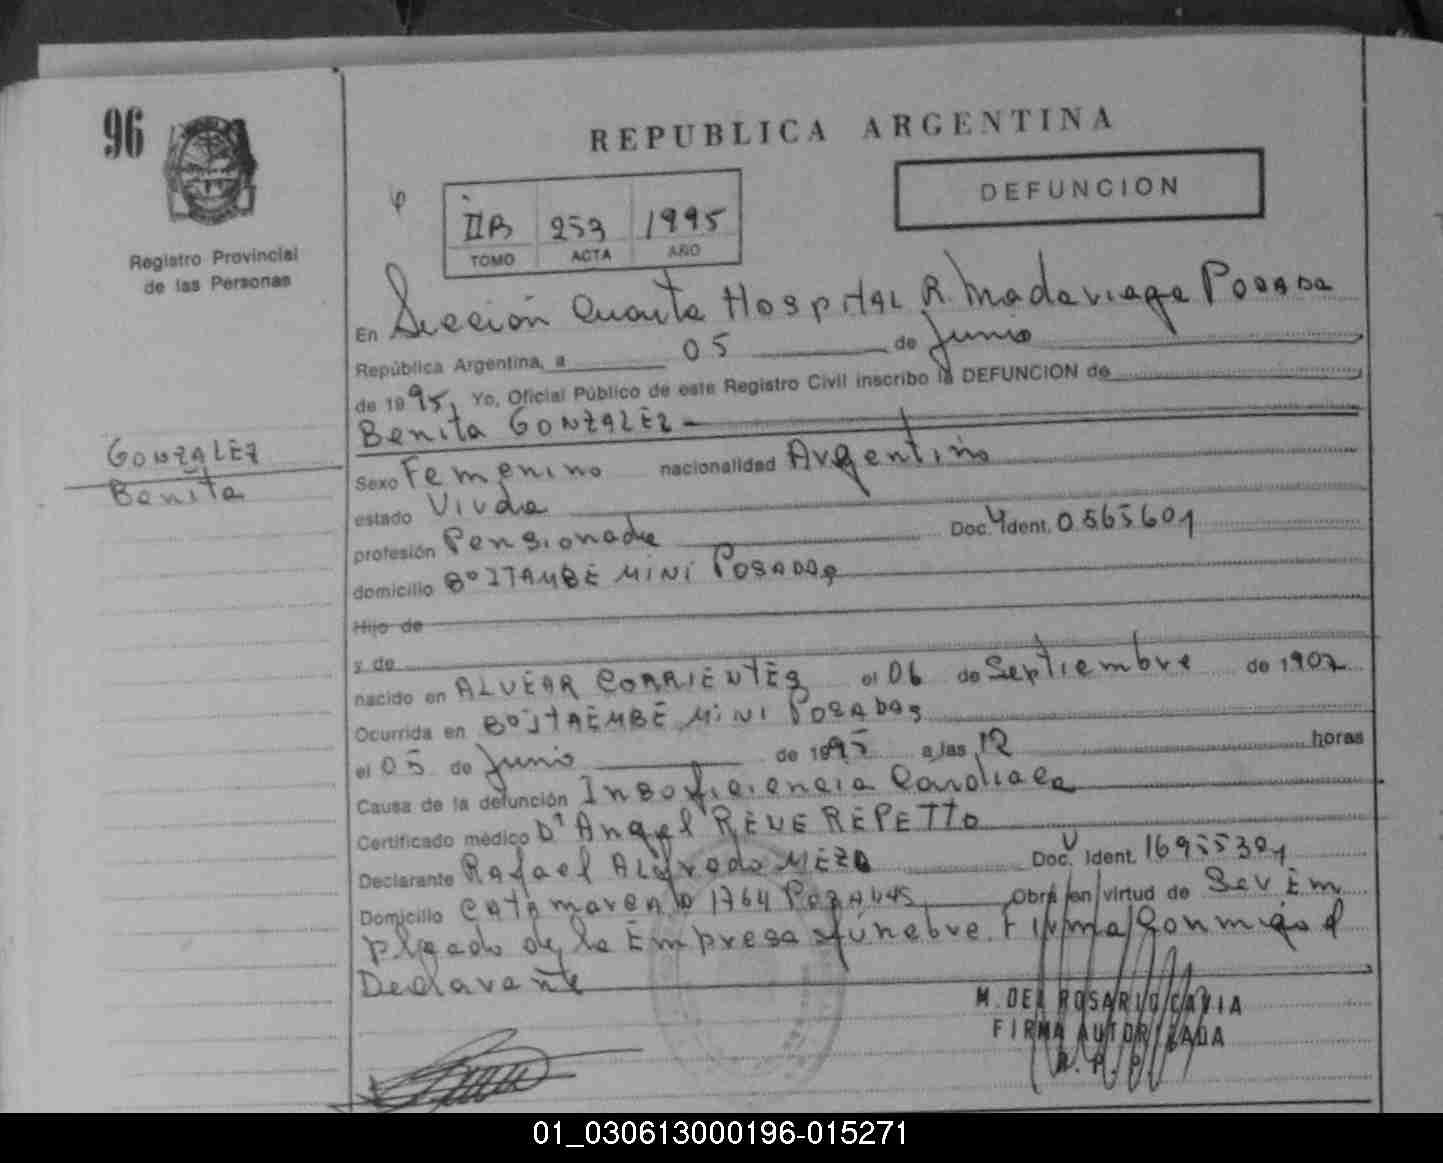 96
REPUBLICA ARGENTINA
DEFUNCION
IIB 253 1995
TOMO ACTA AÑO
Registro Provincial
de las Personas
En Sección Cuarta Hospital R. Madariaga Posadas
República Argentina, a 05 de Junio
de 1995, Yo, Oficial Público de este Registro Civil inscribo la DEFUNCION de
Benita GONZALEZ
GONZALEZ
Benita
Sexo Femenino nacionalidad Argentino
estado Viuda
profesión Pensionada Doc. Ident. 0565601
domicilio Bº ITAMBÉ MINI POSADAS
Hijo de
y de
nacido en ALVEAR CORRIENTES el 06 de Septiembre de 1907
Ocurrida en Bº ITAEMBÉ MINI POSADAS
el 05 de Junio de 1995 a las 12 horas
Causa de la defunción Insoficiencia Cardiaca
Certificado médico Dr Angel RENE REPETTO
Declarante Rafael Alfredo MEZA Doc. Ident. 16955301
Domicilio CATAMARCA 1764 POSADAS Obra en virtud de Ser Em
pleado de la Empresa fúnebre. Firma Conmigo el
Declarante
M. DEL ROSARIO CAVIA
FIRMA AUTORIZADA
R. P. P.
01_030613000196-015271